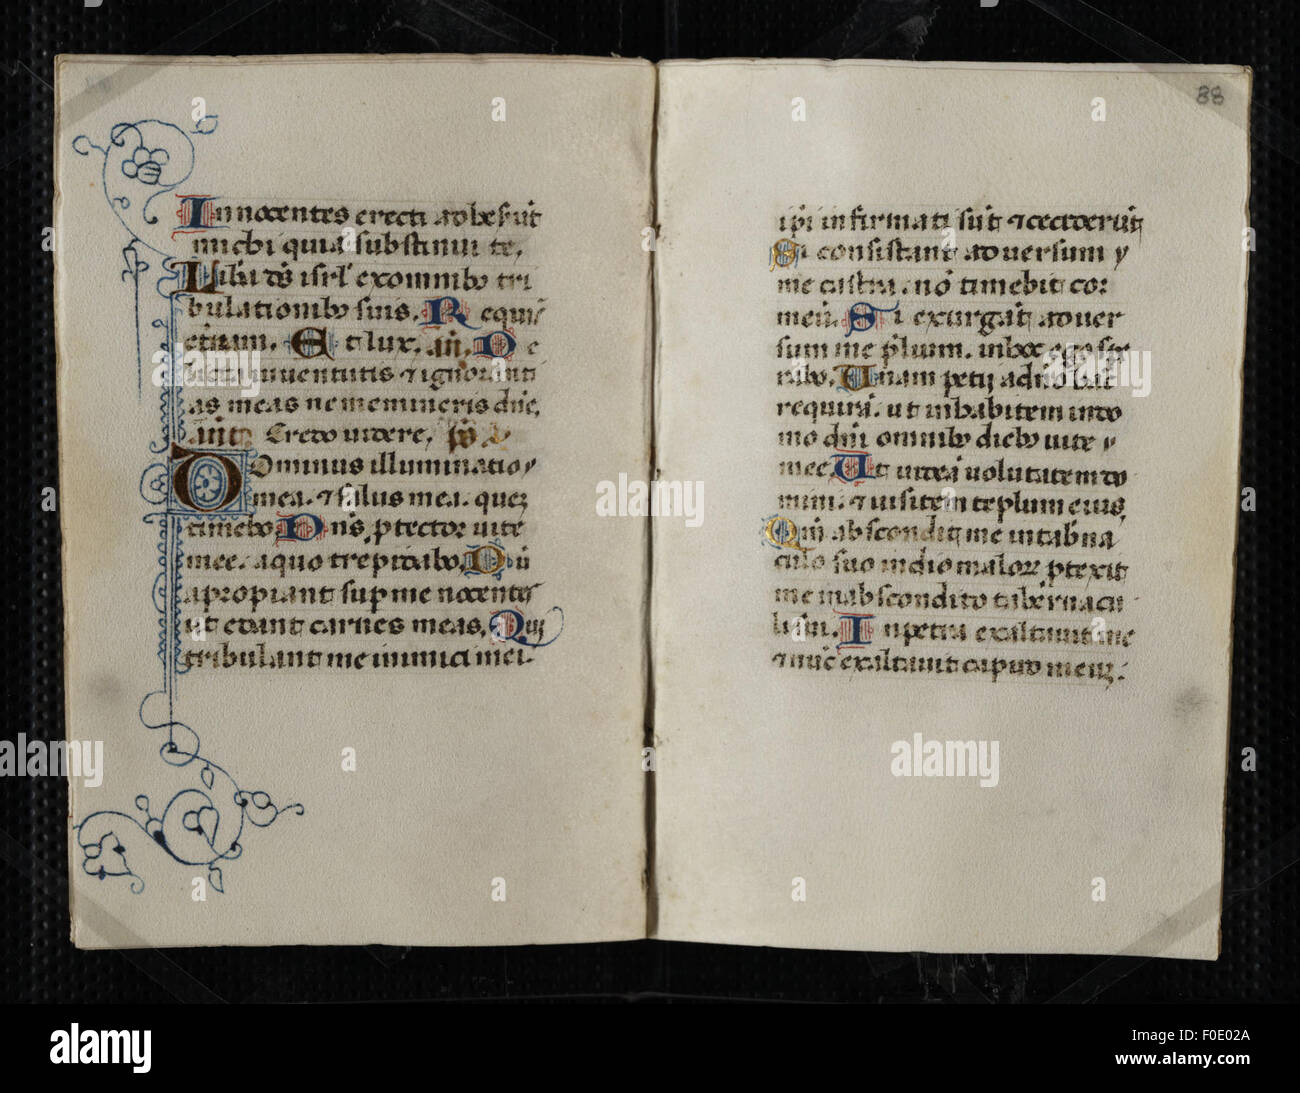 Innocentes erecti adheserūt
michi quia substinui te.
Libā dꝰ isrl' ex omnibꝰ tri
bulationibꝰ suis. Requiē
eternam. Et lux. añ. De
licta iuuentutis ⁊ ignoranti
as meas ne memineris dn̄e.
añ Credo uidere. pš
Dominus illuminatio
mea. ⁊ salus mea. quez
timebo Dn̄s ꝓtector uite
mee. a quo trepidabo. Dū
apropiant sup me nocentes
ut edant carnes meas. Qui
tribulant me inimici mei.
88
ip̄i infirmati sūt ⁊ ceciderūt
Si consistant aduersum
me castra. nō timebit cor
meū. Si exurgat aduer
sum me p̄lium. in hoc ego spe
rabo. Unam petij a dn̄o hāc
requirā. ut inhabitem in do
mo dn̄i omnibꝰ diebꝰ uite
mee. Ut uideā uolutatem do
mini. ⁊ uisitem teplum eius.
Qm̄ abscondit me in tab'na
culo suo in die malorꝝ ꝓtexit
me in abscondito tabernacu
li sui. In petra exaltauit me
⁊ nūc exaltauit caput meuz.
alamy
Image ID: F0E02A
www.alamy.com